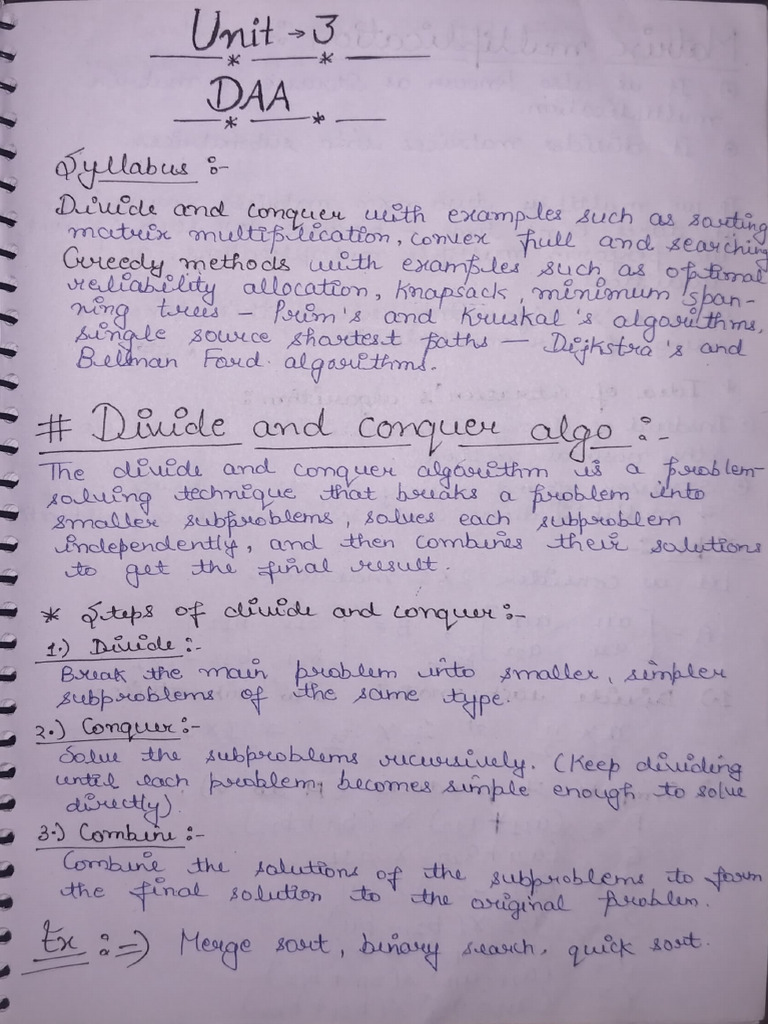 Unit → 3
DAA
Syllabus :-
Divide and conquer with examples such as sorting
matrix multiplication, convex full and searching
Greedy methods with examples such as optimal
reliability allocation, Knapsack, minimum span-
ning trees - Prim's and Kruskal's algorithms,
single source shortest paths - Dijkstra's and
Bellman Ford. algorithms.
# Divide and conquer algo :-
The divide and conquer algorithm is a problem-
solving technique that breaks a problem into
smaller subproblems, solves each subproblem
independently, and then combines their solutions
to get the final result.
* Steps of divide and conquer :-
1.) Divide :-
Break the main problem into smaller, simpler
subproblems of the same type.
2.) Conquer :-
Solve the subproblems recursively. (Keep dividing
until each problem, becomes simple enough to solve
directly)
3.) Combine :-
Combine the solutions of the subproblems to form
the final solution to the original problem.
Ex :=) Merge sort, binary search, quick sort.